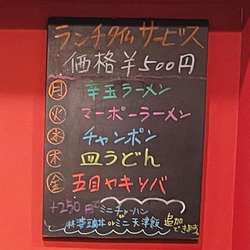 ランチタイムサービス
価格¥500円
月 辛玉ラーメン
火 マーボーラーメン
水 チャンポン
木 皿うどん
金 五目ヤキソバ
+250円でミニチャーハン
orミニ天津飯 追加
でき〼